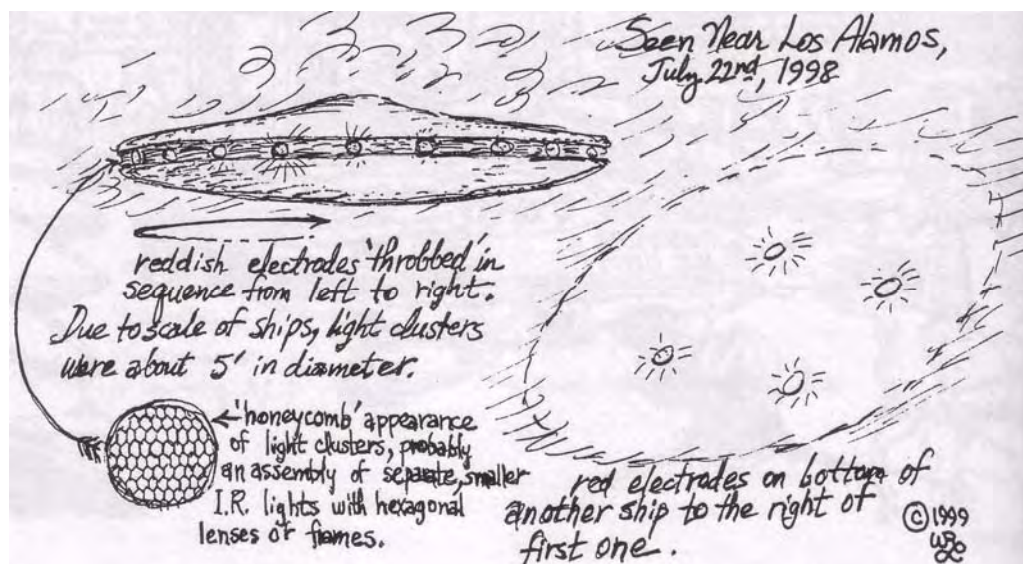 Seen Near Los Alamos,
July 22nd, 1998
reddish electrodes 'throbbed' in
sequence from left to right.
Due to scale of ships, light clusters
were about 5' in diameter.
'honeycomb' appearance
of light clusters, probably
an assembly of separate, smaller
I.R. lights with hexagonal
lenses or frames.
red electrodes on bottom of
another ship to the right of
first one.
© 1999